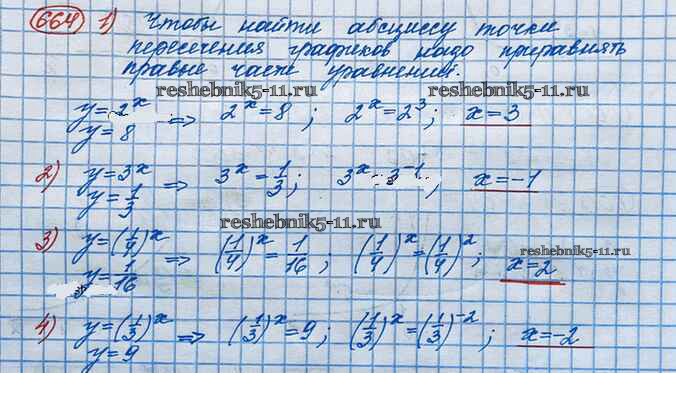 664 1) Чтобы найти абсциссу точки
пересечения графиков надо приравнять
правые части уравнений.
reshebnik5-11.ru reshebnik5-11.ru
y=2^x
y=8 => 2^x=8; 2^x=2^3; x=3
2) y=3^x
y=1/3 => 3^x=1/3; 3^x=3^-1; x=-1
reshebnik5-11.ru
3) y=(1/4)^x
y=1/16 => (1/4)^x=1/16; (1/4)^x=(1/4)^2; x=2
reshebnik5-11.ru
4) y=(1/3)^x
y=9 => (1/3)^x=9; (1/3)^x=(1/3)^-2; x=-2